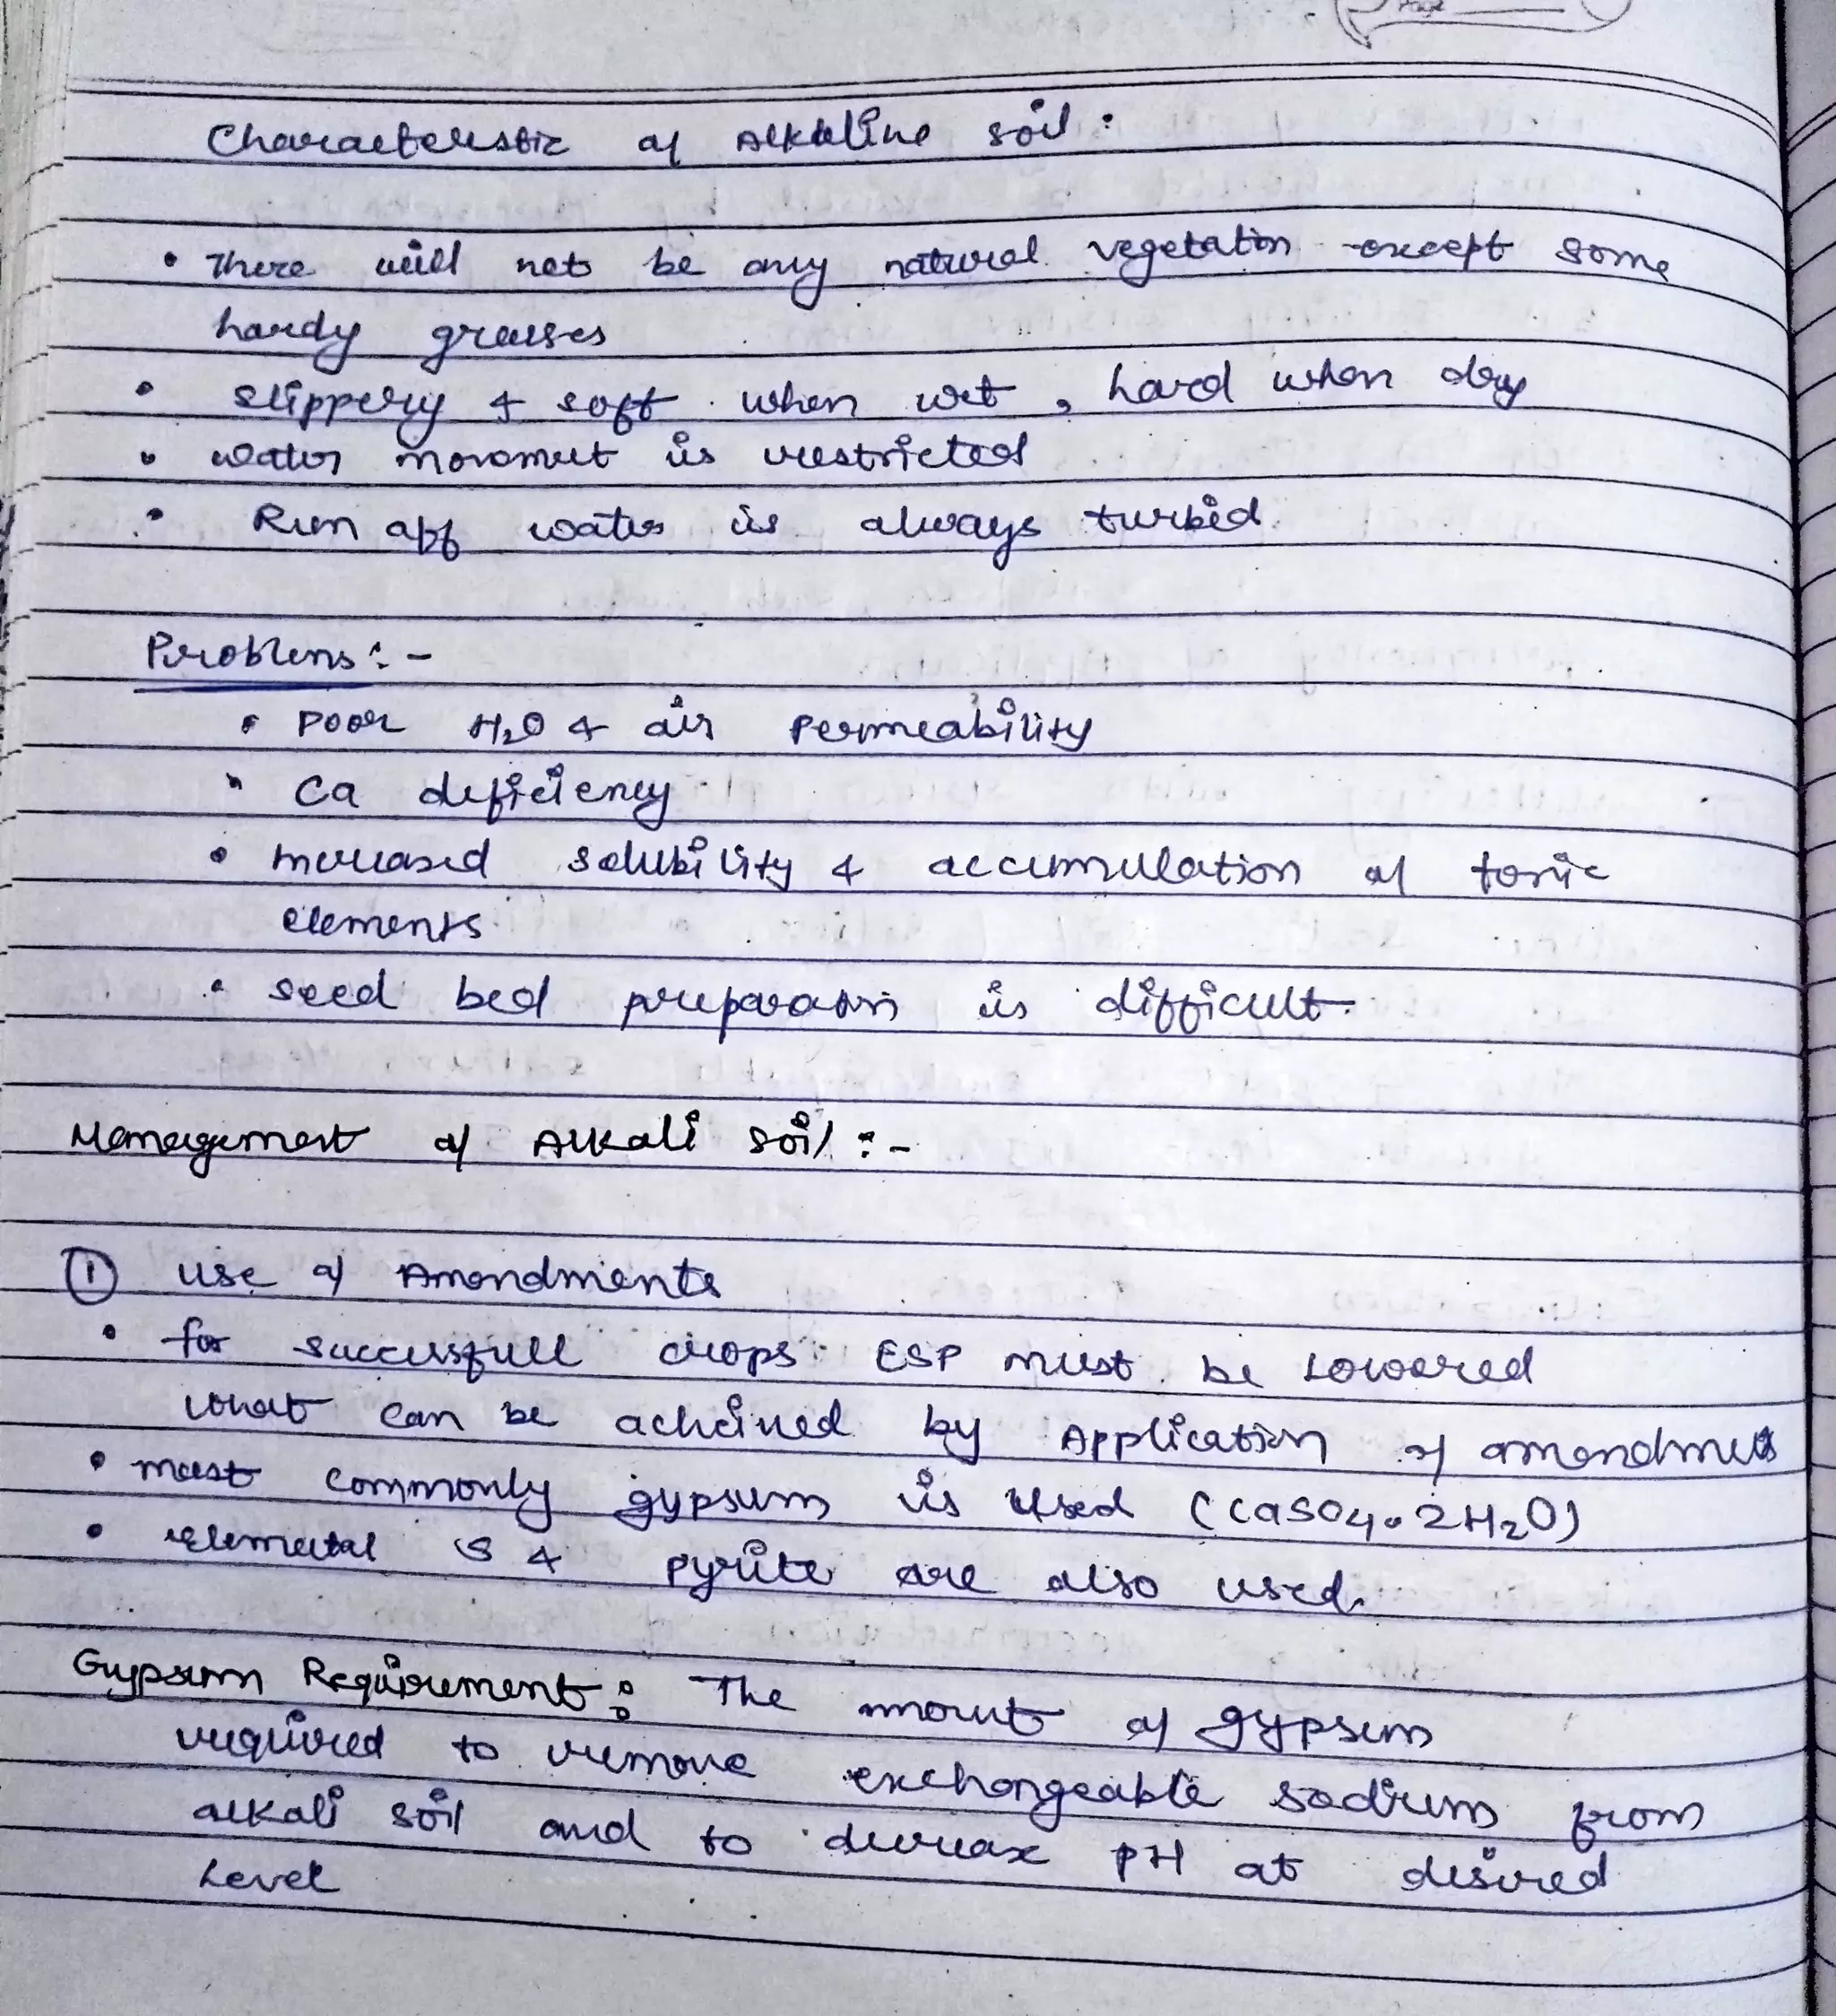 Page
Characteristic of Alkaline soil :
• There will not be any natural vegetation except some
hardy grasses
• slippery & soft when wet, hard when dry
• water movement is restricted
• Run off water is always turbid
Problems : -
• Poor H₂O & air Permeability
• Ca deficiency
• Increased solubility & accumulation of toxic
elements
• seed bed preparation is difficult.
Management of Alkali soil : -
① use of Amendments
• for successfull crops ESP must be Lowered
what can be acheived by Application of amendments
• most commonly gypsum is used (CaSO₄.2H₂O)
• elemental S & pyrite are also used.
Gypsum Requirement : The amount of gypsum
required to remove exchangeable sodium from
alkali soil and to decrease PH at desired
Level